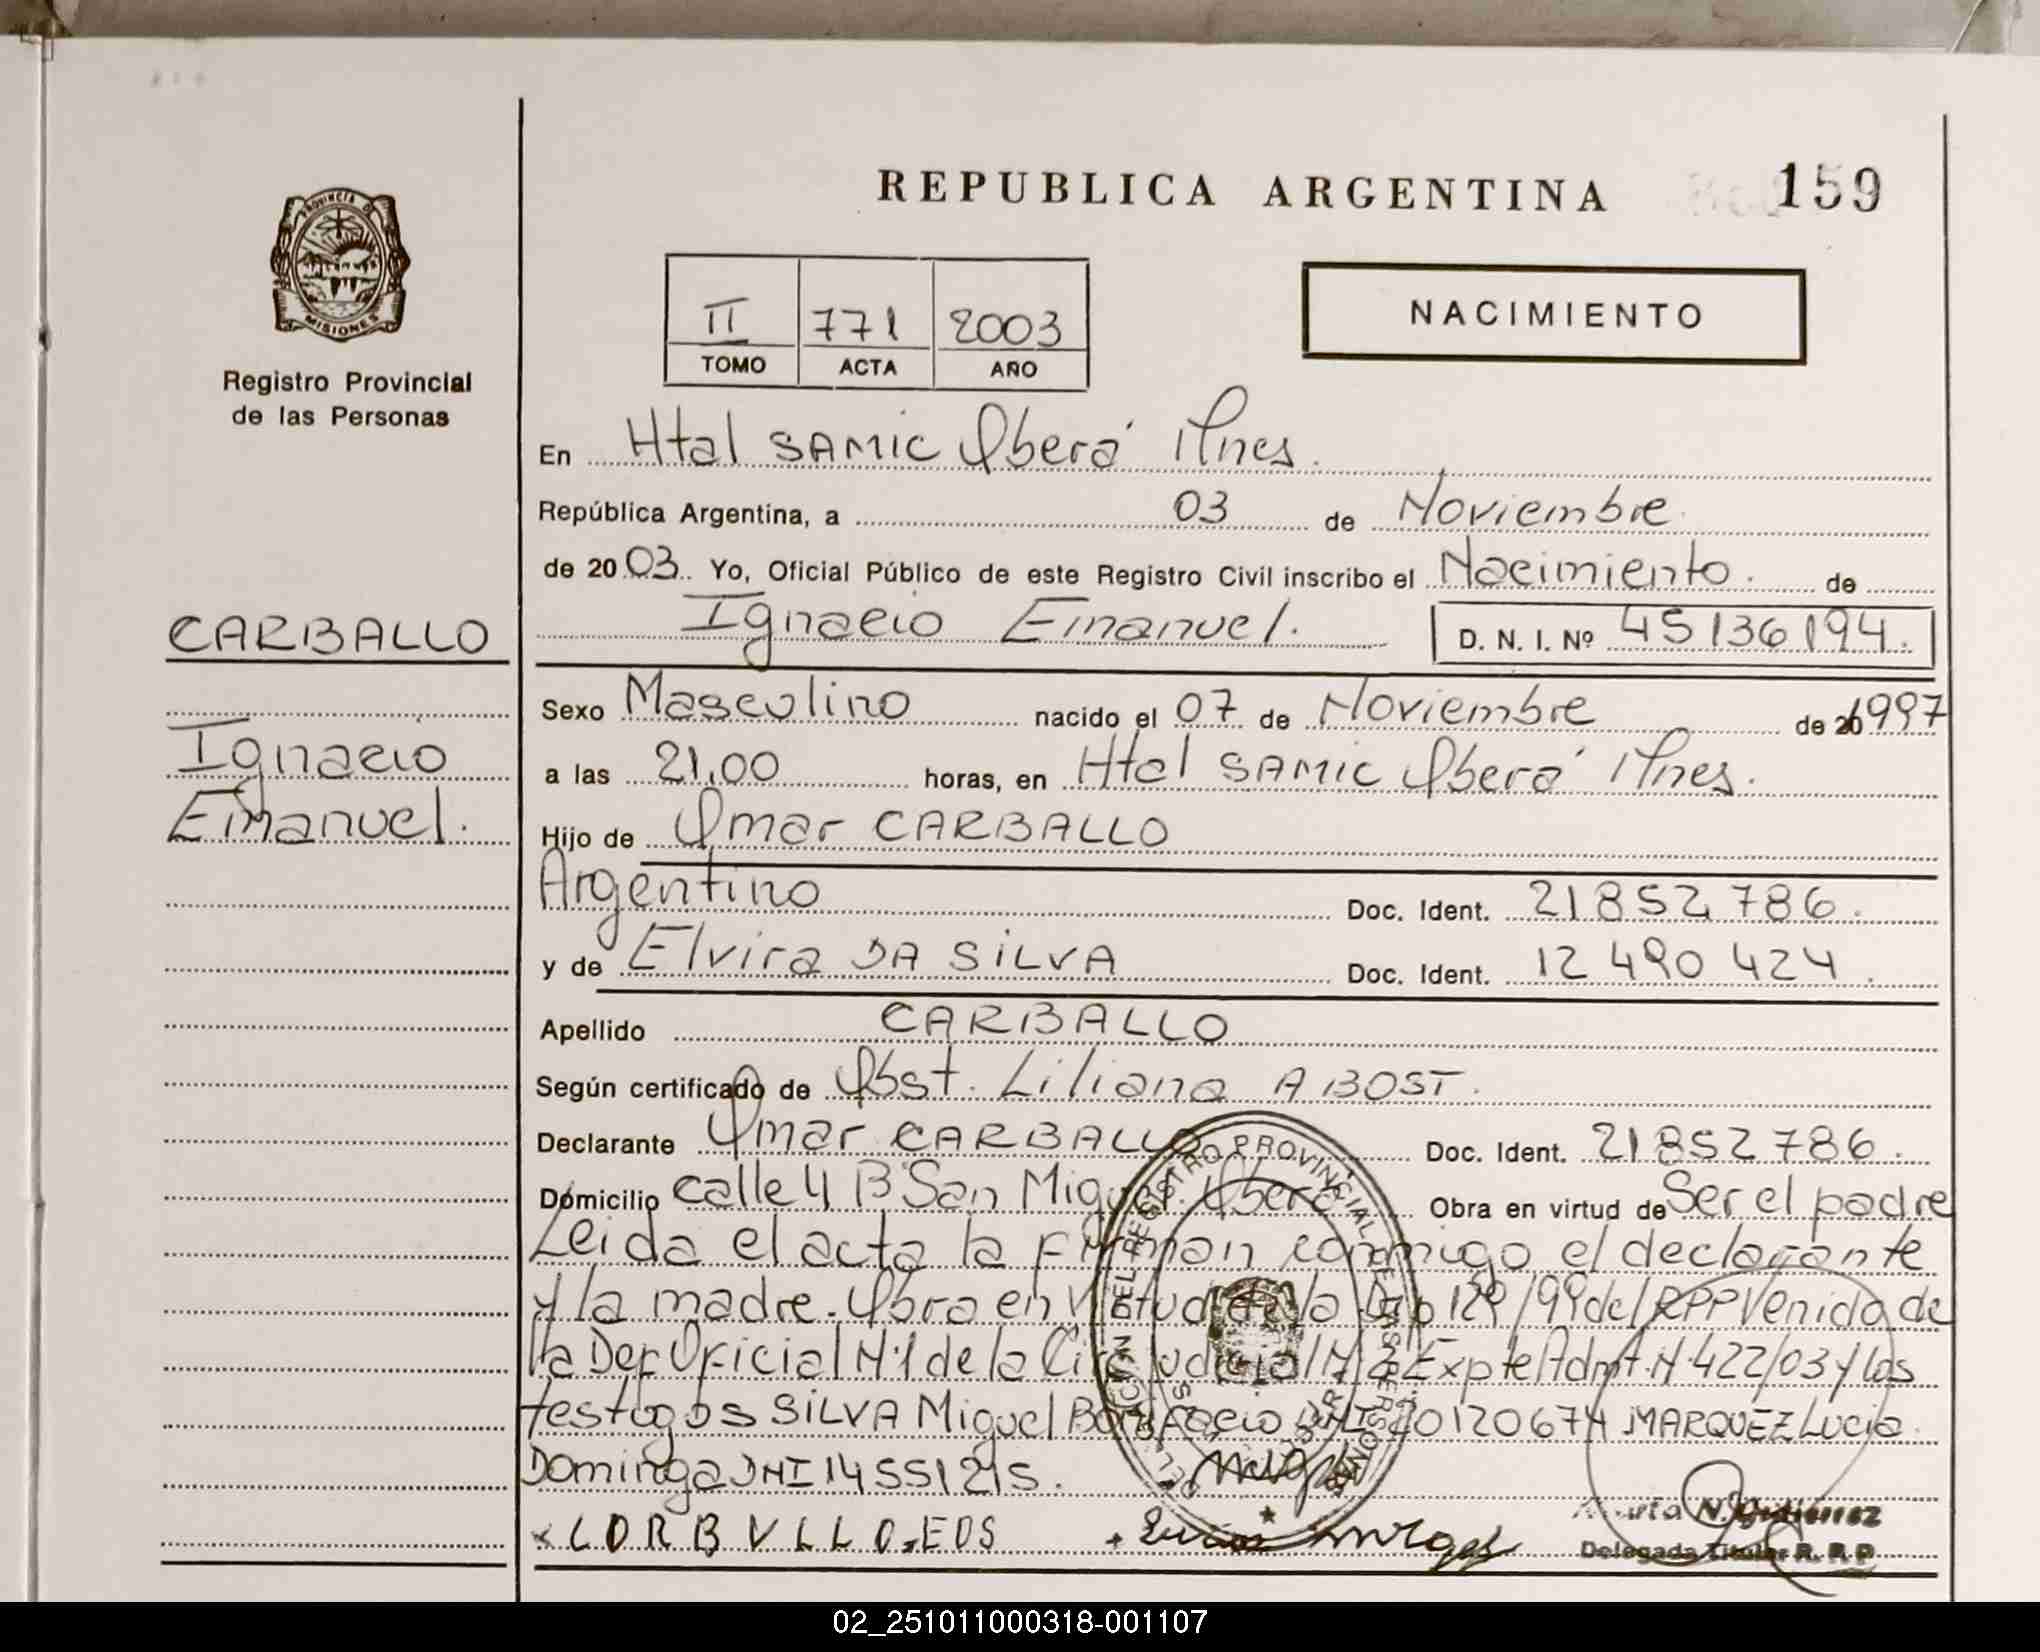 REPUBLICA ARGENTINA 159
PROVINCIA DE
MISIONES
Registro Provincial
de las Personas
II 771 2003
TOMO ACTA AÑO
NACIMIENTO
En Htal SAMIC Oberá Mnes.
República Argentina, a 03 de Noviembre
de 2003. Yo, Oficial Público de este Registro Civil inscribo el Nacimiento. de
Ignacio Emanuel. D. N. I. Nº 45136194.
CARBALLO
Ignacio
Emanuel.
Sexo Masculino nacido el 07 de Noviembre de 1997
a las 21,00 horas, en Htal SAMIC Oberá Mnes.
Hijo de Omar CARBALLO
Argentino Doc. Ident. 21852786.
y de Elvira DA SILVA Doc. Ident. 12 490 424.
Apellido CARBALLO
Según certificado de Obst. Liliana ABOST.
Declarante Omar CARBALLO Doc. Ident. 21852786.
Domicilio calle 4 B San Miguel. Oberá Obra en virtud de Ser el padre
Leida el acta la firman conmigo el declarante
y la madre. Obra en Virtud de la Disp 129/99 del RPP Venida de
la Def Oficial N·1 de la Circ Judicial N·2 Expte Admt. N·422/03 y los
testigos SILVA Miguel Bonifacio DNI 20120674 MARQUEZ Lucia
Dominga DNI 14551215.
DEL REGISTRO PROVINCIAL DE LAS PERSONAS
Marta N. Gutierrez
Delegada Titular R. P. P
02_251011000318-001107